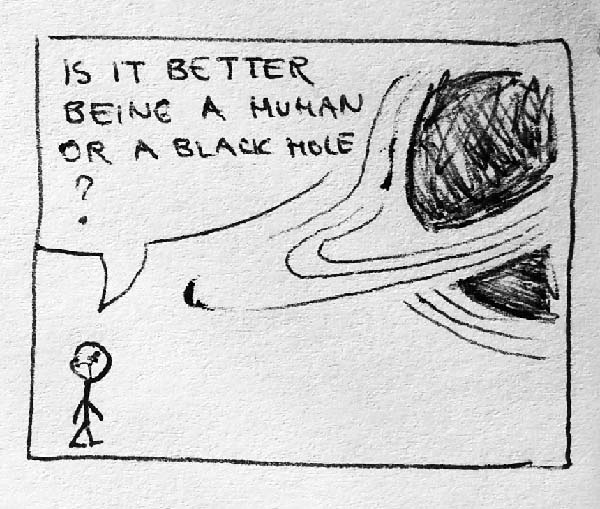 IS IT BETTER
BEING A HUMAN
OR A BLACK HOLE
?